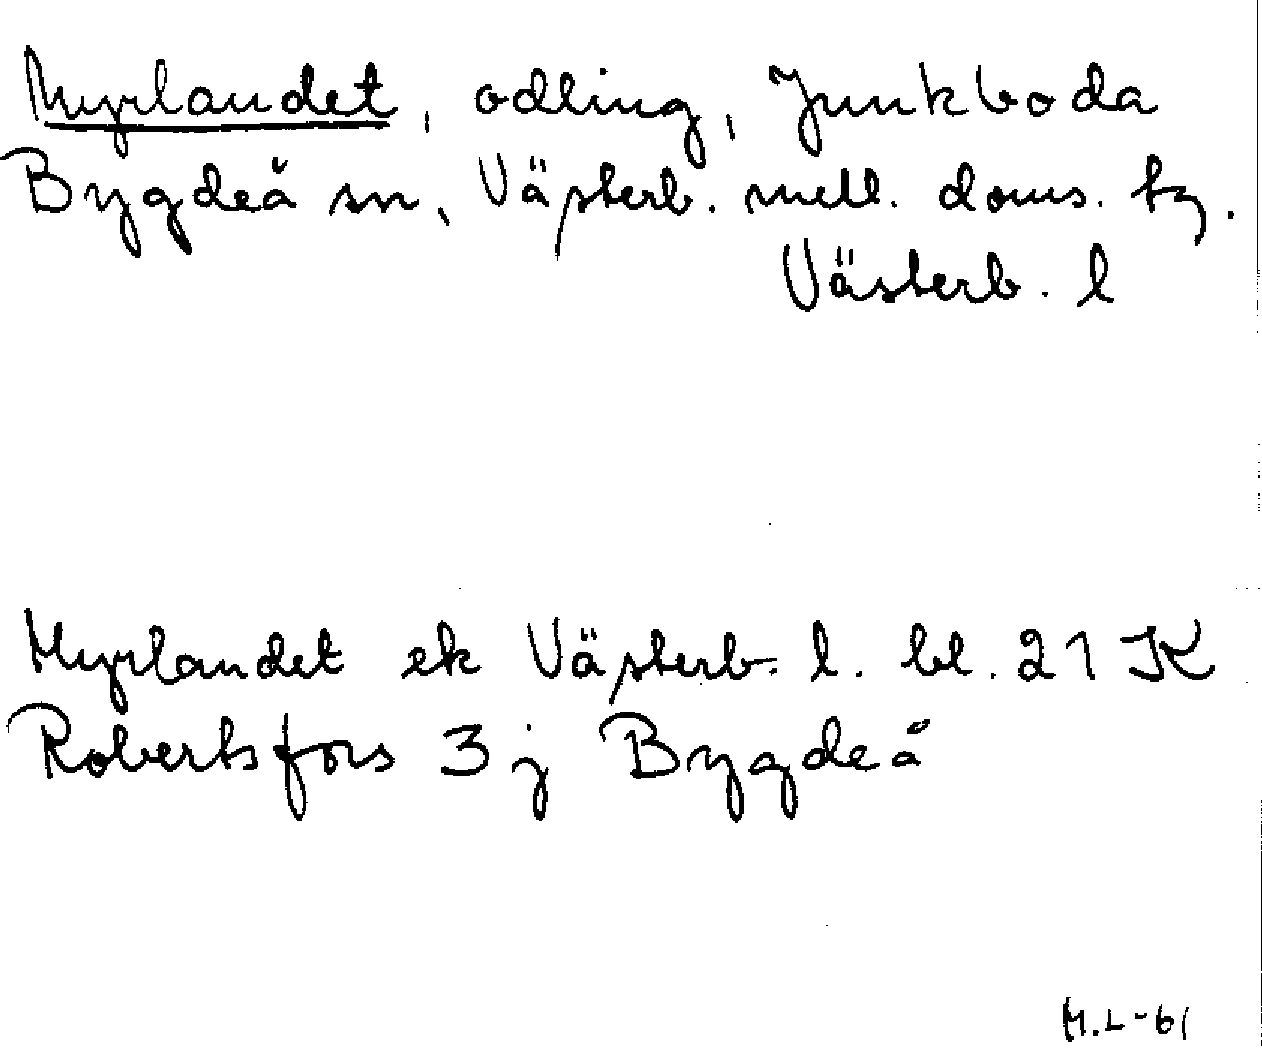 Myrlandet, odling, Junkboda
Bygdeå sn, Västerb. mell. doms. tg.
Västerb. l
Myrlandet ek Västerb. l. bl. 21 JK
Robertsfors 3 j Bygdeå
M.L-61